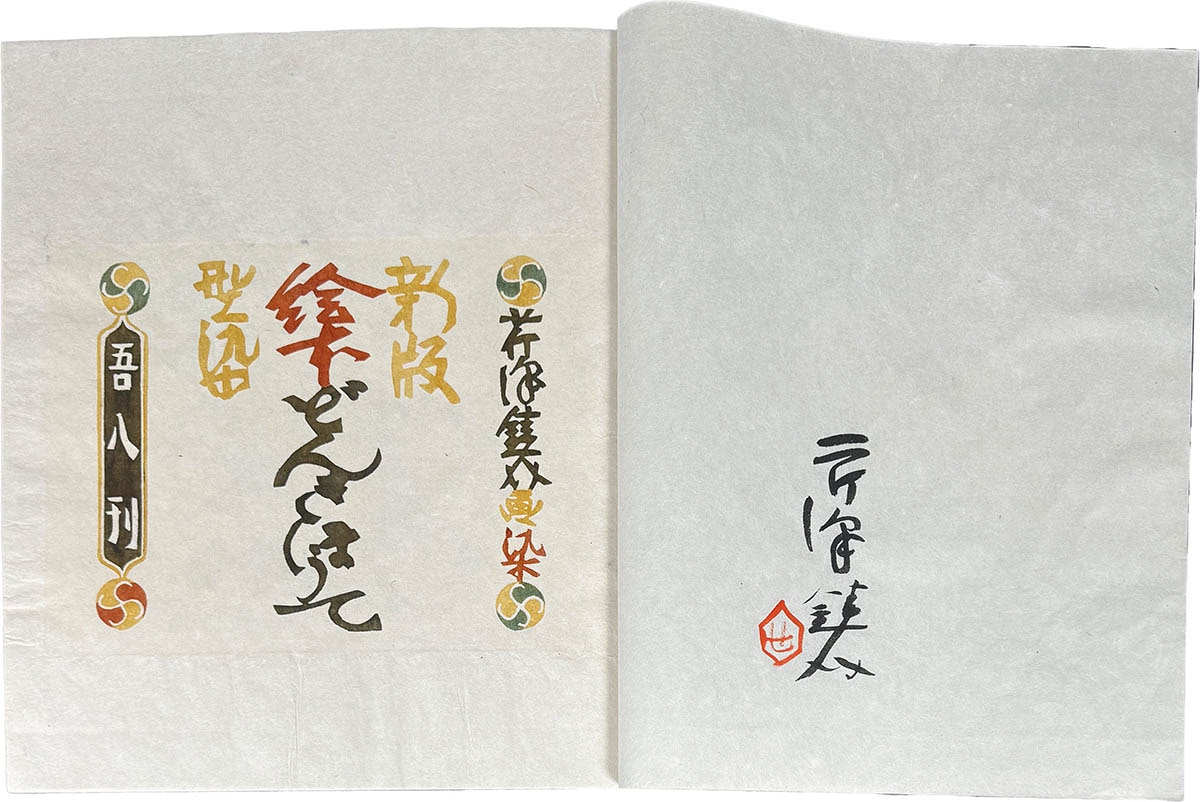 芹澤銈介
せ
芹澤銈介画染
新版
絵本どんきほうて
型染
吾八刊